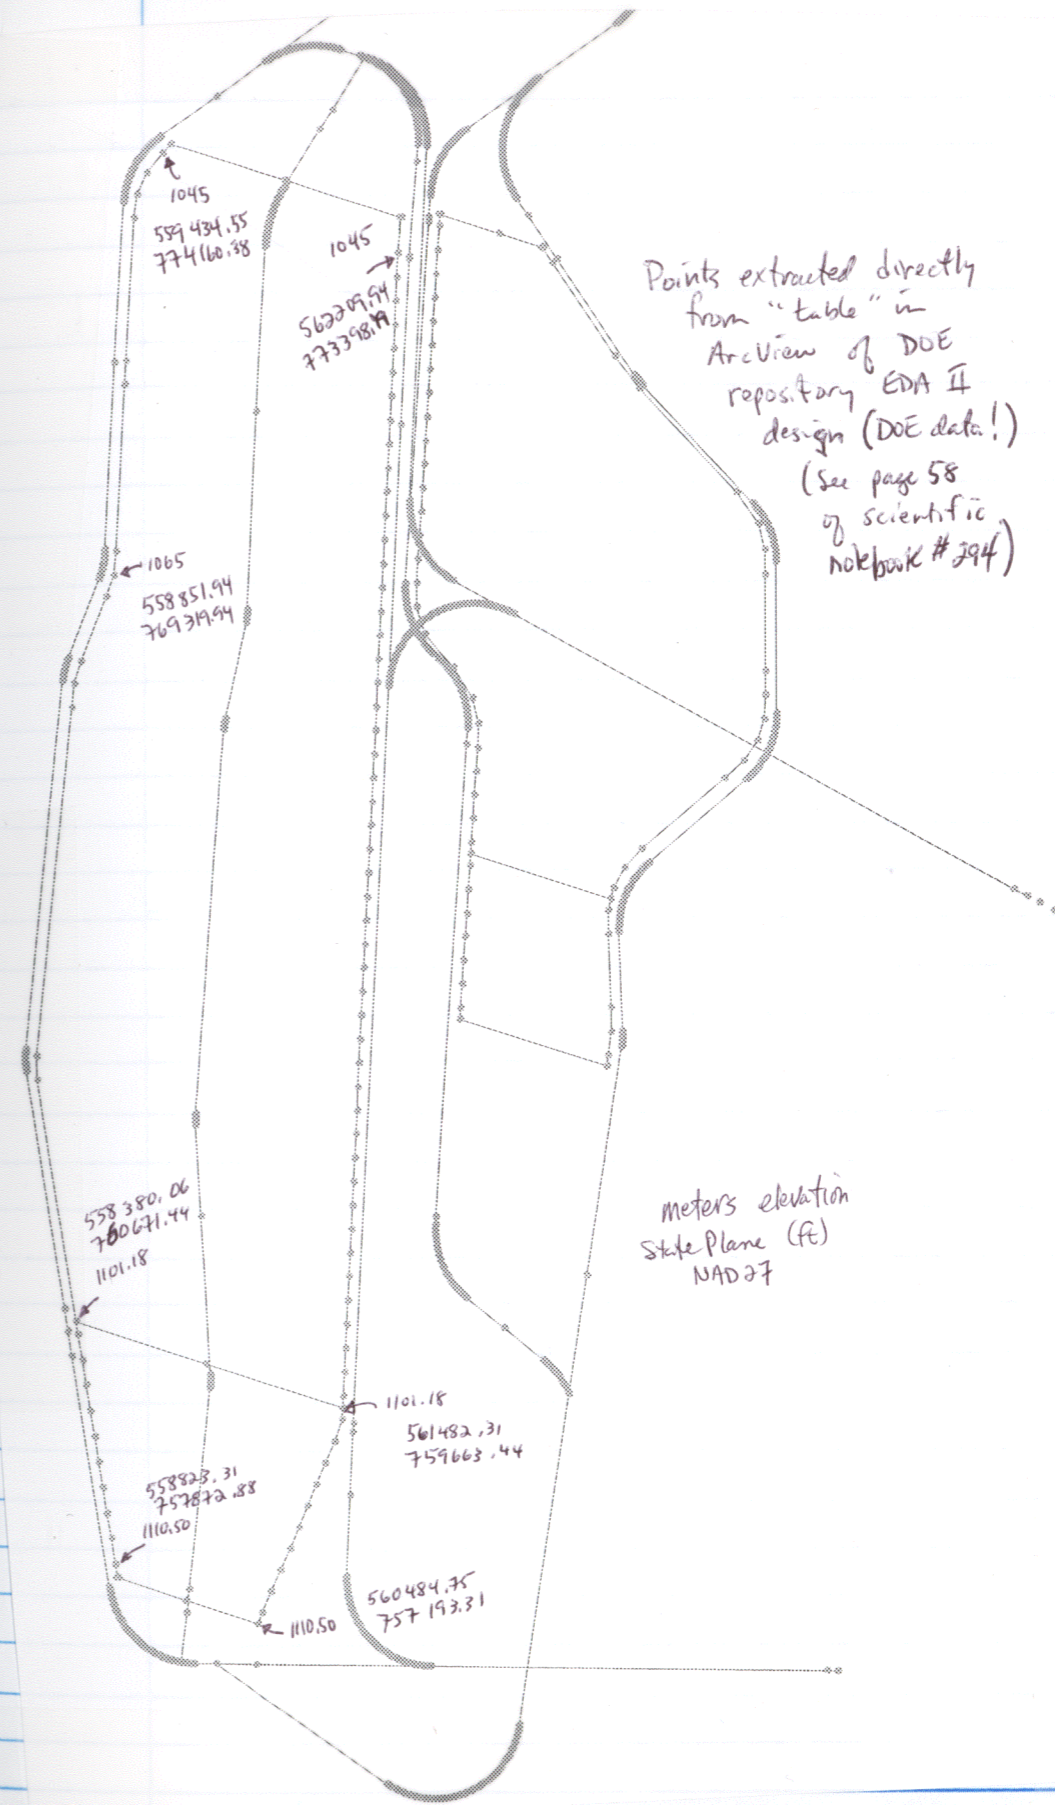 1045
559434.55
774160.38
1045
562209.94
773398.19
Points extracted directly
from "table" in
ArcView of DOE
repository EDA II
design (DOE data!)
(See page 58
of scientific
notebook #294)
1065
558851.94
769319.94
558380.06
760671.44
1101.18
meters elevation
State Plane (ft)
NAD27
1101.18
561482.31
759663.44
558823.31
757872.88
1110.50
560484.75
757193.31
1110.50